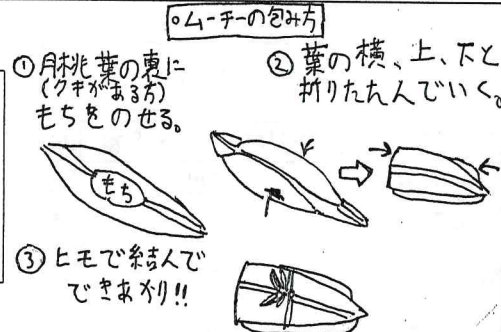 ○ムーチーの包み方
① 月桃葉の裏に
(クキがある方)
もちをのせる。
もち
② 葉の横、上、下と
折りたたんでいく。
③ ヒモで結んで
できあがり!!